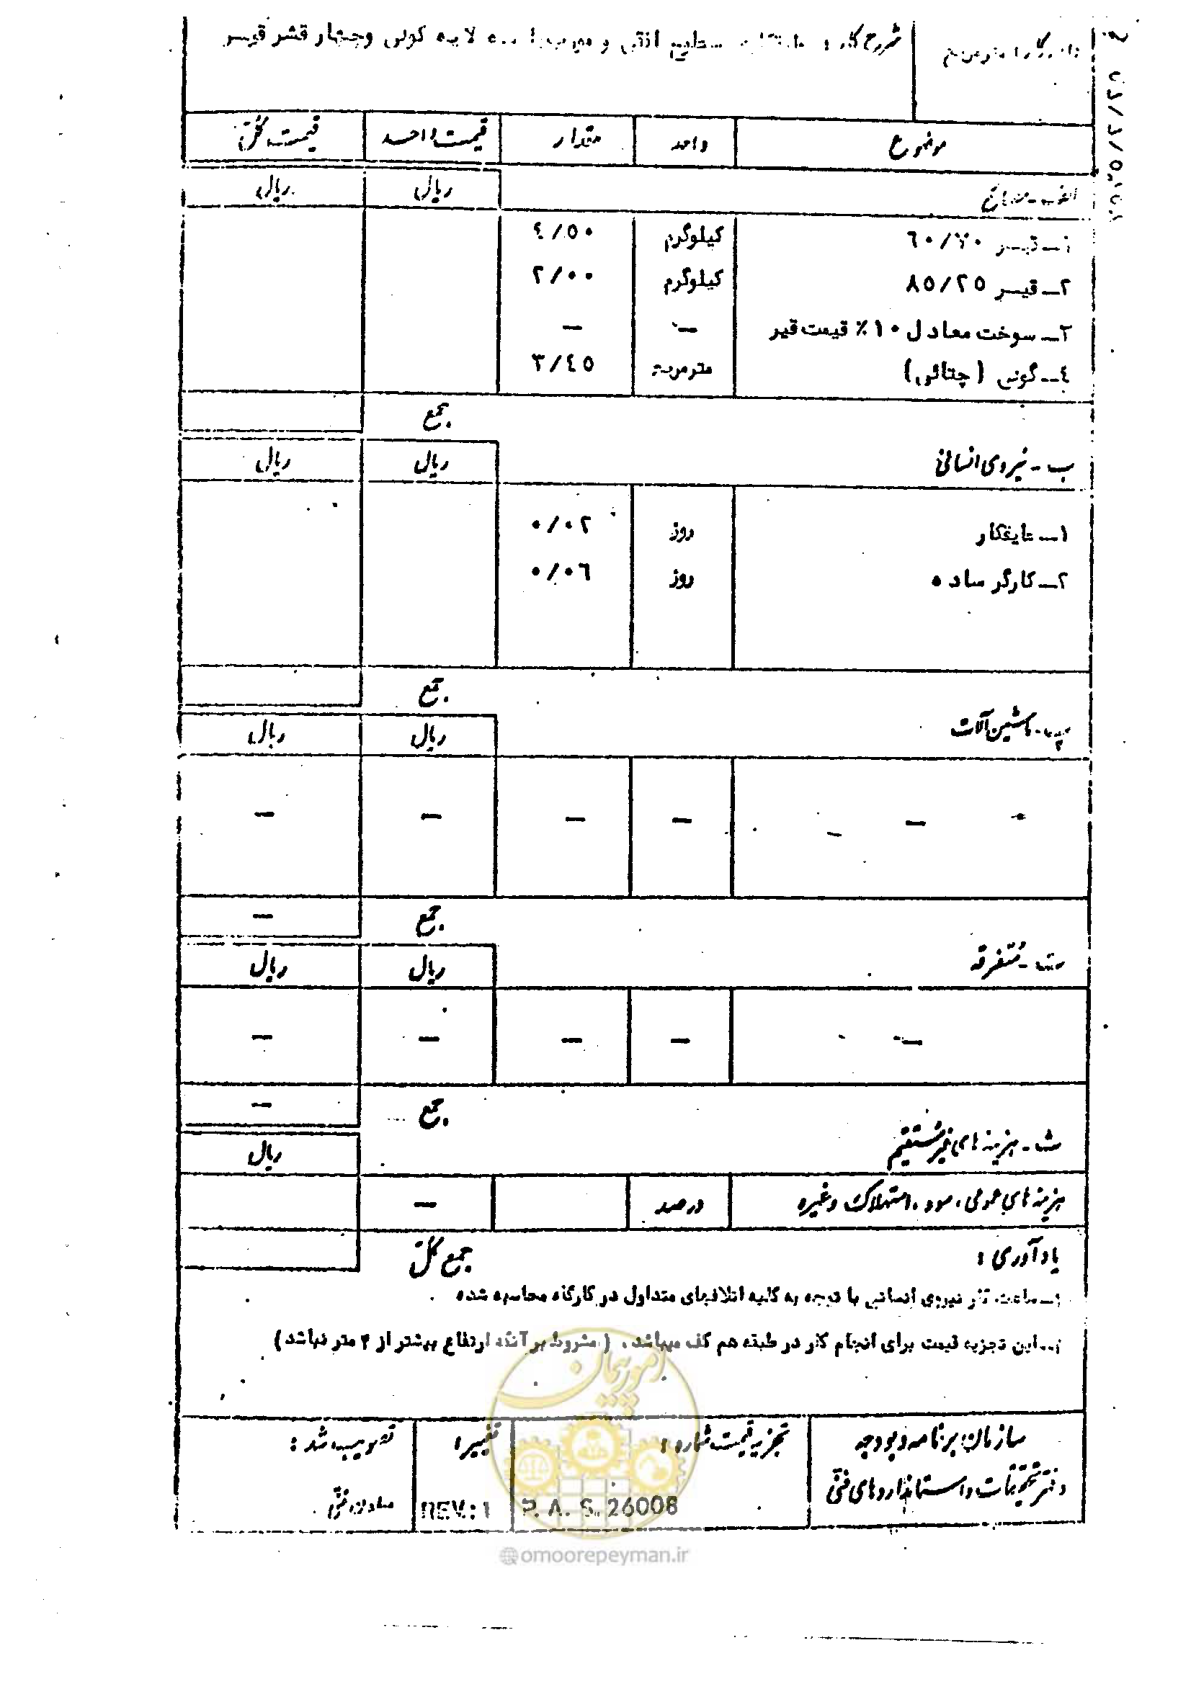 شرح کار : سطوح افقی و لایه گونی وچهار قشر قیر
موضوع واحد مقدار قیمت واحد قیمت کل
الف - مصالح ریال ریال
۱ــ قیر ۶۰/۷۰ کیلوگرم ۴/۵۰
۲ــ قیر ۸۵/۲۵ کیلوگرم ۲/۰۰
۳ــ سوخت معادل ۱۰٪ قیمت قیر — —
۴ــ گونی (چتائی) مترمربع ۳/۴۵
جمع
ب - نیروی انسانی ریال ریال
۱ــ عایقکار روز ۰/۰۲
۲ــ کارگر ساده روز ۰/۰۶
جمع
پ - ماشین‌آلات ریال ریال
— — — — —
جمع —
ت - متفرقه ریال ریال
— — — — —
جمع —
ث - هزینه های غیرمستقیم ریال
هزینه های عمومی، سود، استهلاک وغیره درصد —
یادآوری : جمع کل
۱ــ ساعت کار نیروی انسانی با توجه به کلیه اتلافهای متداول در کارگاه محاسبه شده .
۲ــ این تجزیه قیمت برای انجام کار در طبقه هم کف میباشد . (مشروط بر آنکه ارتفاع بیشتر از ۴ متر نباشد)
سازمان برنامه وبودجه تجزیه قیمت شماره : تغییر : تصویب شد :
دفتر تحقیقات و استانداردهای فنی P. A. S. 26008 REV: 1 معاون فنی
امور پیمان
@omoorepeyman.ir